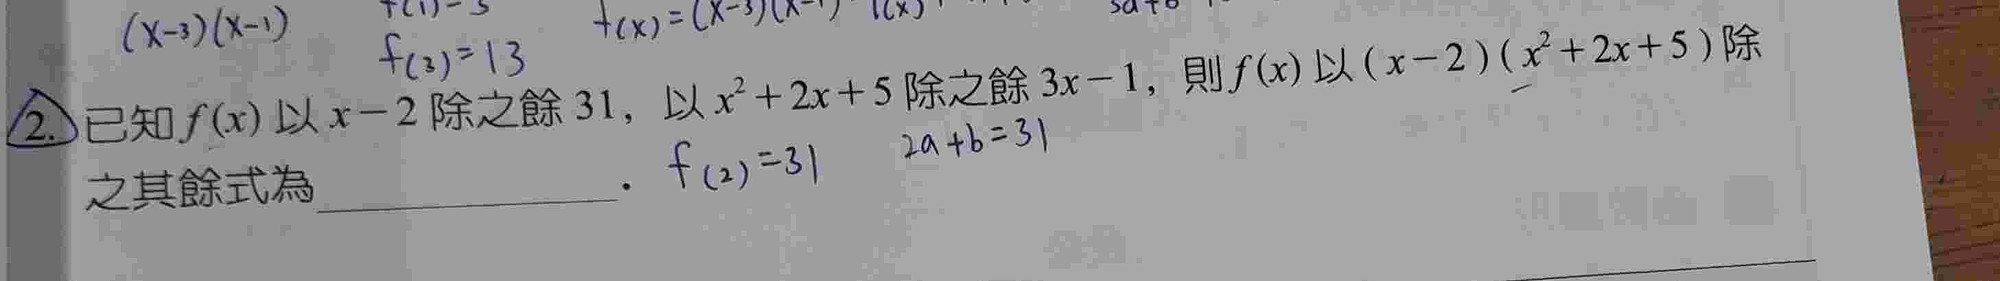 (x-3)(x-1)
f(3)=13
2. 已知 f(x) 以 x-2 除之餘 31，以 x²+2x+5 除之餘 3x-1，則 f(x) 以 (x-2)(x²+2x+5) 除
之其餘式為＿＿＿＿＿＿. f(2)=31 2a+b=31